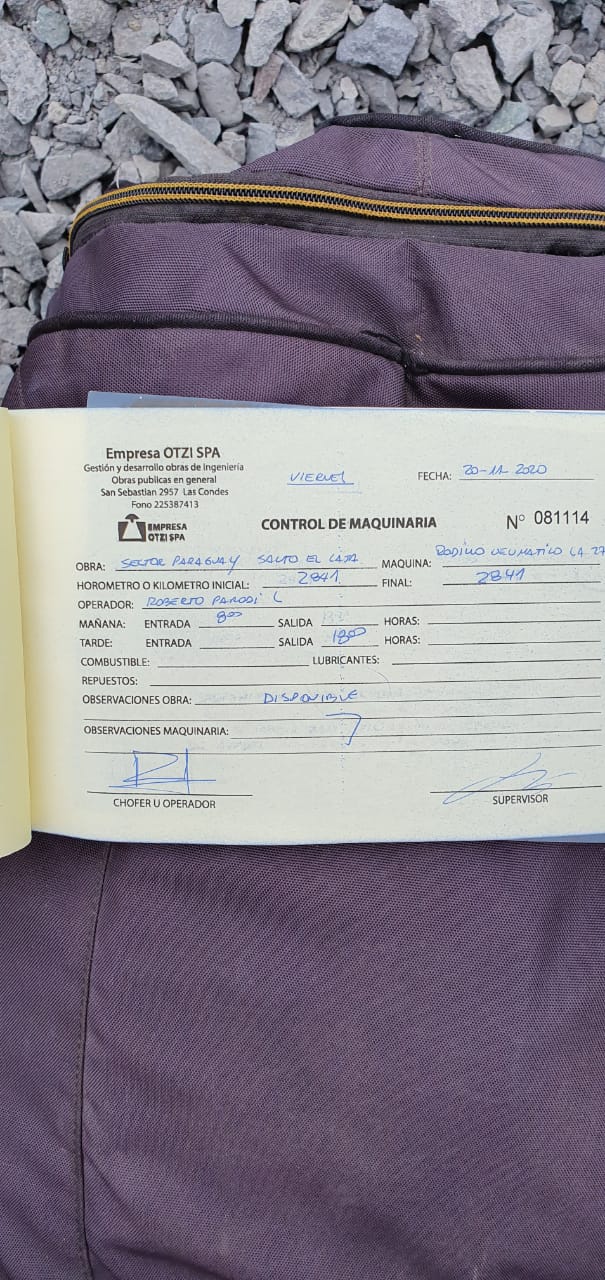 Empresa OTZI SPA
Gestión y desarrollo obras de ingeniería
Obras publicas en general
San Sebastian 2957 Las Condes
Fono 225387413
EMPRESA
OTZI SPA
VIERNES
FECHA: 20-11-2020
CONTROL DE MAQUINARIA
N° 081114
OBRA: SECTOR PARAGUAY SALTO EL LAJA MAQUINA: RODILLO NEUMATICO LA 27
HOROMETRO O KILOMETRO INICIAL: 2841 FINAL: 2841
OPERADOR: ROBERTO PARODI L
MAÑANA: ENTRADA 8:00 SALIDA HORAS:
TARDE: ENTRADA SALIDA 18:00 HORAS:
COMBUSTIBLE: LUBRICANTES:
REPUESTOS:
OBSERVACIONES OBRA: DISPONIBLE
OBSERVACIONES MAQUINARIA:
CHOFER U OPERADOR
SUPERVISOR